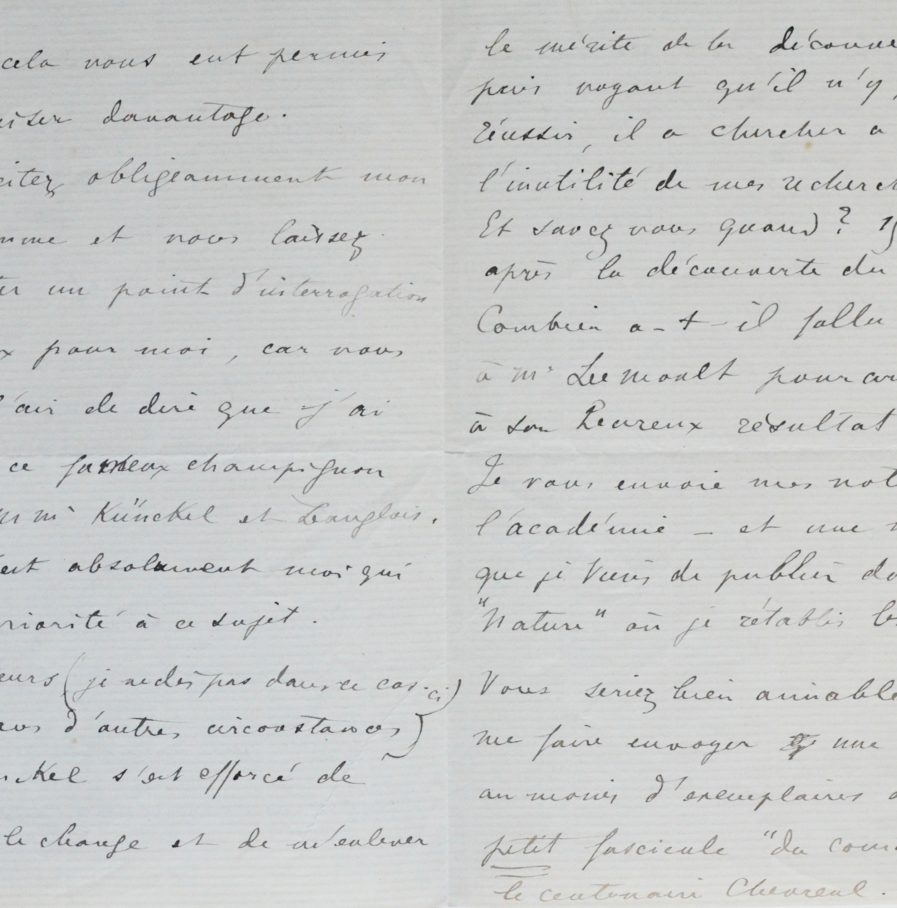 cela nous eut permis
iser davantage.
citez obligeamment mon
mme et nous laissez
er un point d'interrogation
x pour moi, car vous
l'air de dire que j'ai
ce fameux champignon
Mmrs Künckel et Langlois.
est absolument moi qui
riorité à ce sujet.
eurs (je ne dis pas dans ce cas-ci)
ans d'autres circonstances)
nckel s'est efforcé de
le change et de m'enlever
le mérite de la découve
puis voyant qu'il n'y
réussir, il a chercher a
l'inutilité de mes recherch
Et savez vous quand? 15
après la découverte du
Combien a-t-il fallu
à mr Le moult pour arr
à son heureux résultat
Je vous envoie mes not
l'académie - et une n
que je viens de publier da
"Nature" où je rétablis le
Vous seriez bien aimable
me faire envoyer une
au moins d'exemplaires d
petit fascicule "du cour
le centenaire Chevreul.